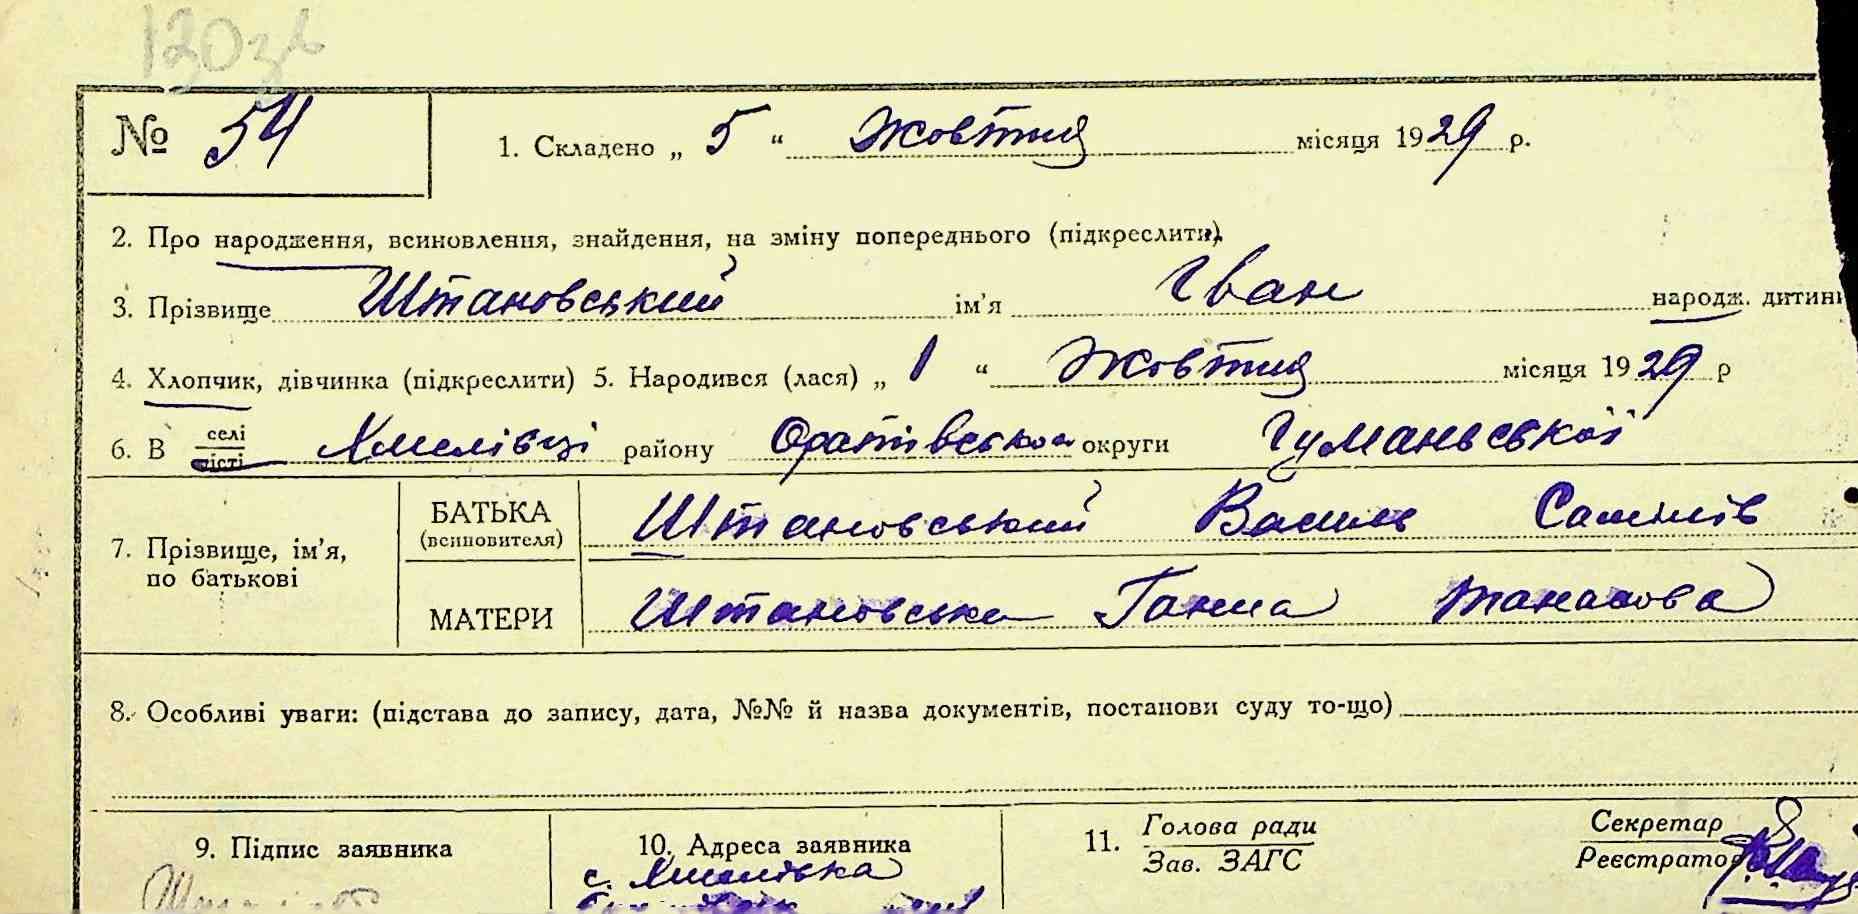 120зв
№ 54
1. Складено „ 5 “ Жовтня місяця 1929 р.
2. Про народження, всиновлення, знайдення, на зміну попереднього (підкреслити)
3. Прізвище Штановський ім’я Іван народж. дитини
4. Хлопчик, дівчинка (підкреслити) 5. Народився (лася) „ 1 “ Жовтня місяця 1929 р
6. В селі місті Хмелівці району Оратівського округи Гуманьської
7. Прізвище, ім’я, по батькові
БАТЬКА (всиновителя) Штановський Василь
МАТЕРИ Штановська Ганна Танасова
8. Особливі уваги: (підстава до запису, дата, №№ й назва документів, постанови суду то-що)
9. Підпис заявника
10. Адреса заявника
с. Хмелівка
11. Голова ради
Зав. ЗАГС
Секретар
Реєстратор